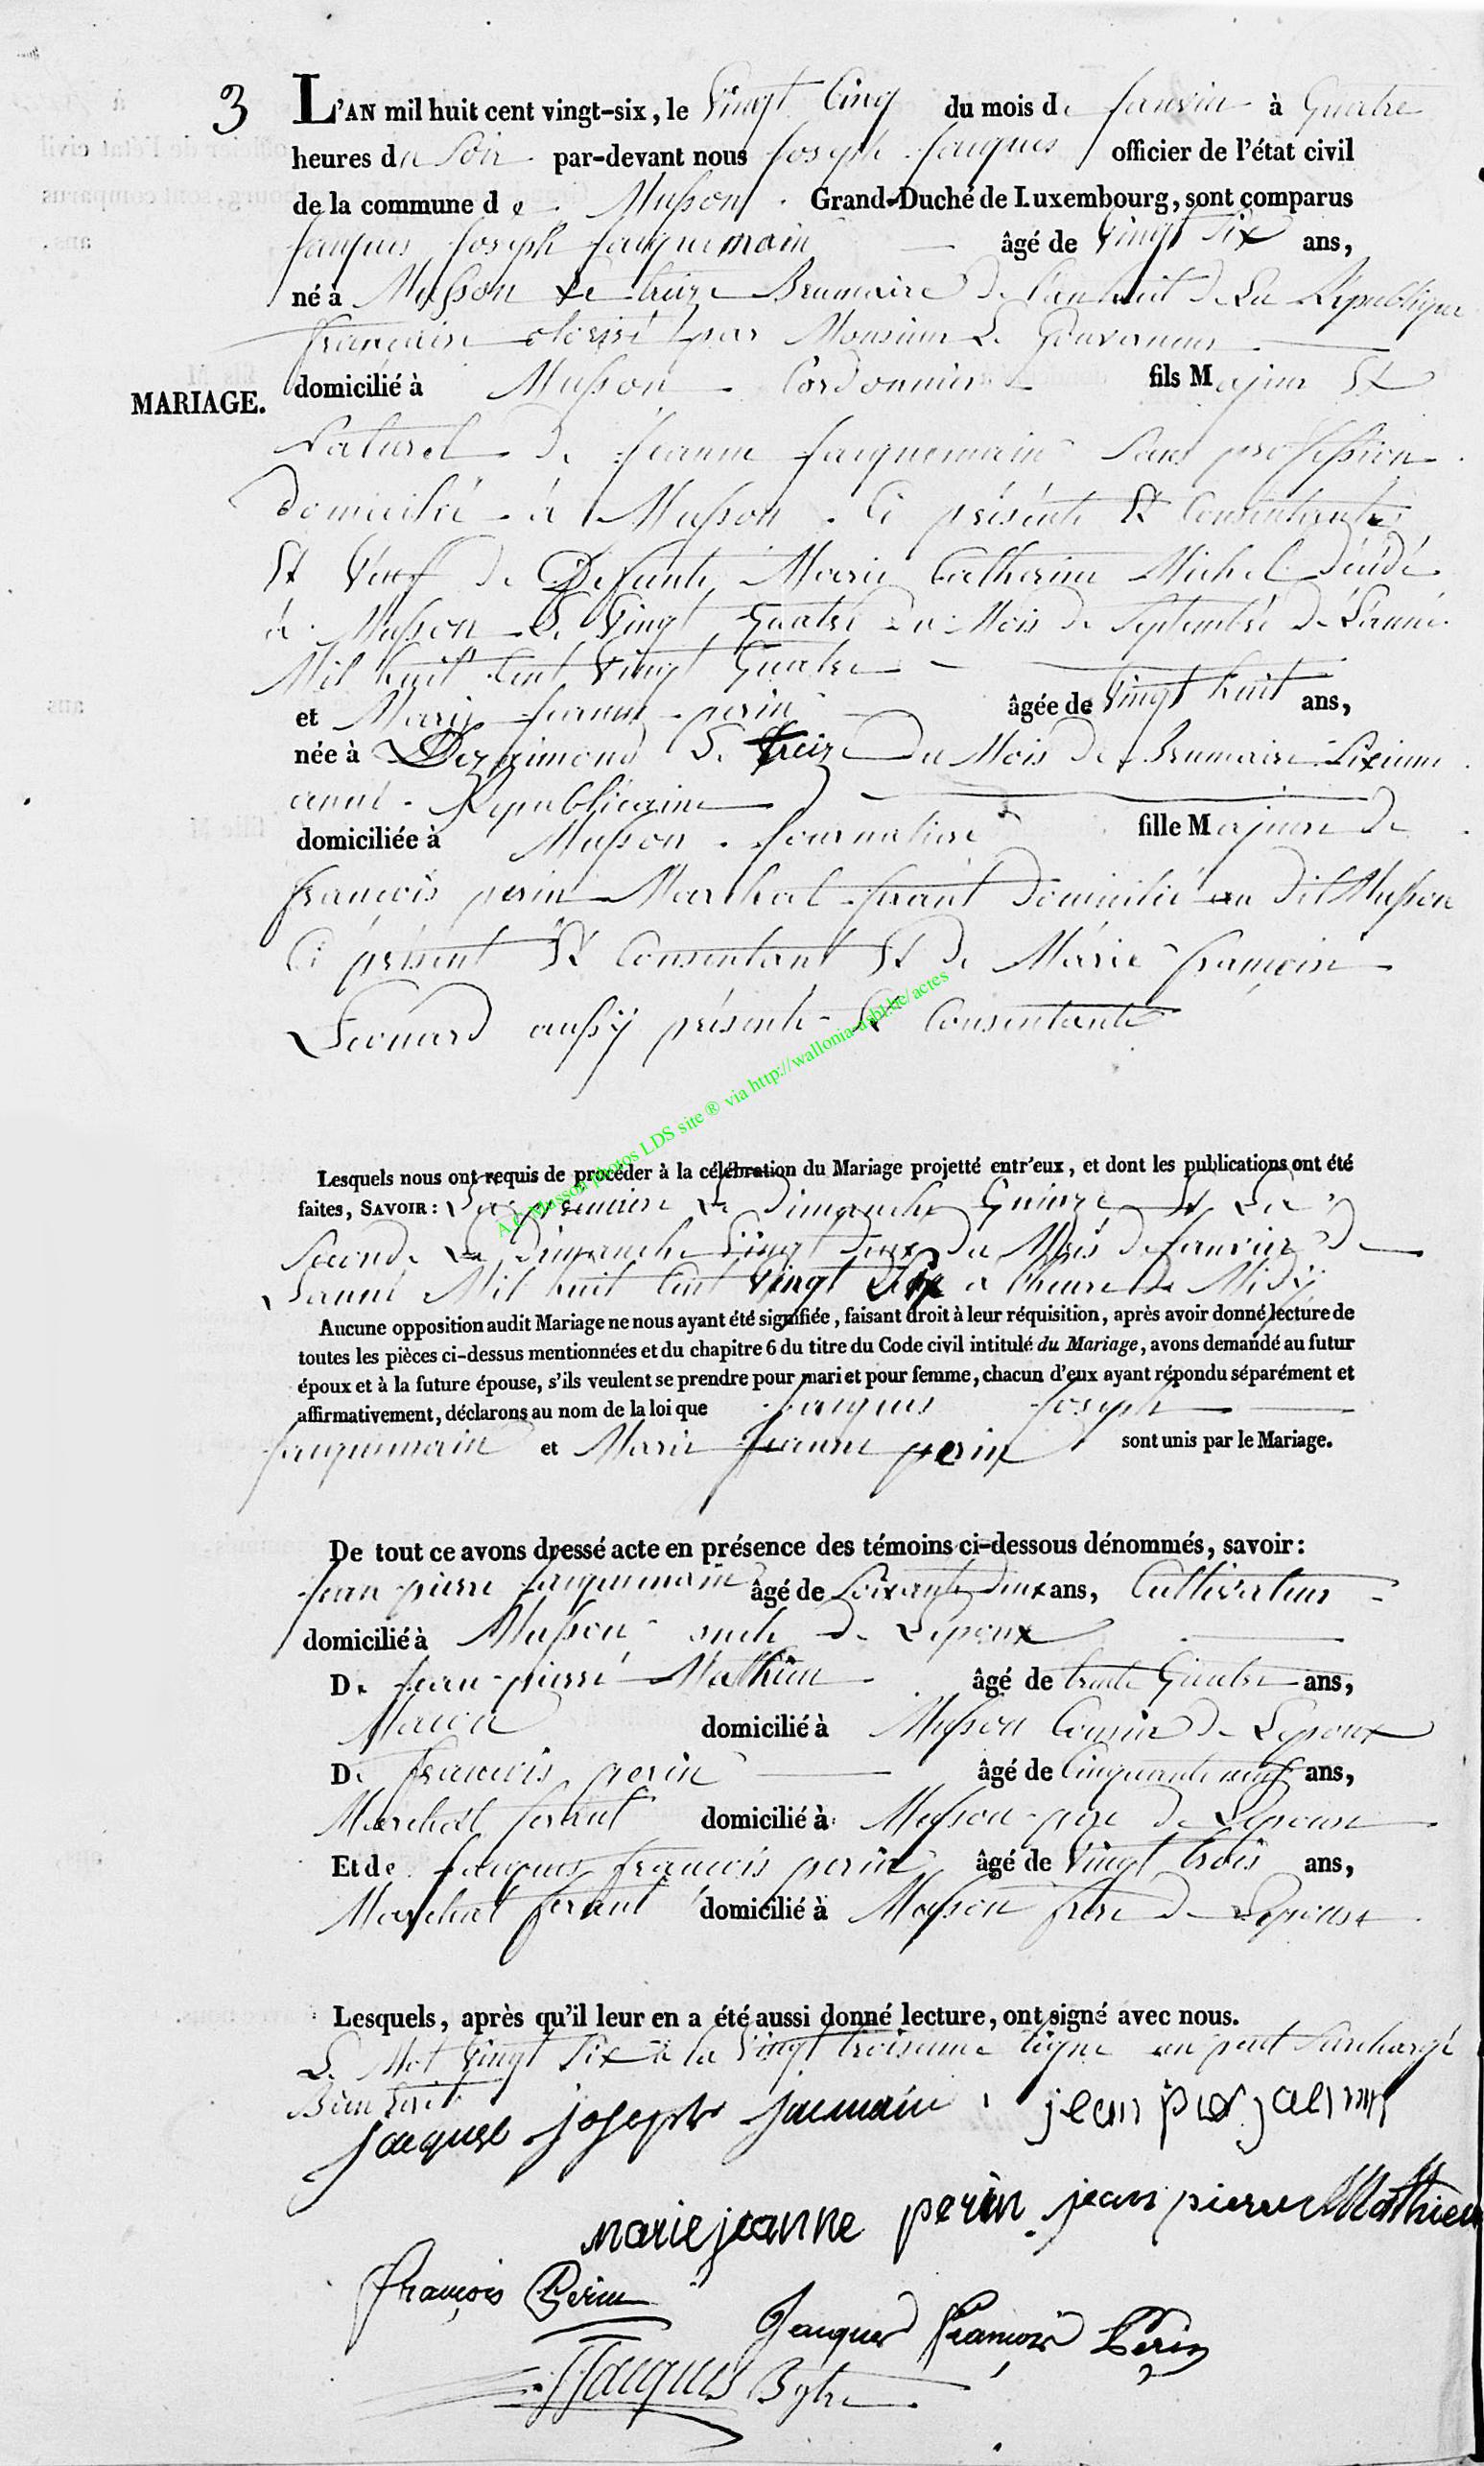 3 L'AN mil huit cent vingt-six, le Vingt Cinq du mois de Janvier à Quatre
heures du Soir par-devant nous Joseph Jacques officier de l'état civil
de la commune de Musson Grand-Duché de Luxembourg, sont comparus
Jacques Joseph Jacquemain âgé de Vingt Six ans,
né à Musson Le treize Brumaire De L'an huit De La Republique
française par Monsieur Le Gouverneur
MARIAGE. domicilié à Musson Cordonnier fils Majeur Et
Naturel De Jeanne Jacquemain Sans profession
Domicilié à Musson Ci présente Et Consentante
Et Veuf de Defunte Marie Catherine Michel décédé
à Musson Le Vingt Quatre du Mois de Septembre De L'année
Mil huit Cent Vingt Quatre
et Marie Jeanne perin âgée de Vingt huit ans,
née à Le treize Du Mois De Brumaire Sixieme
anné Republicaine
domiciliée à Musson Journaliere fille Majeure De
François perin Marchal ferant Domicilié au dit Musson
Ci présent Et Consentant Et De Marie françoise
Leonard aussÿ présente Et Consentante
A.C Musson photos LDS site ® via http://wallonia-asbl.be/actes
Lesquels nous ont requis de procéder à la célébration du Mariage projetté entr'eux, et dont les publications ont été
faites, SAVOIR: La premiere Le Dimanche Quinze Et La
Seconde Le Dimanche Vingt Deux Du Mois de Janvier De
L'anné Mil huit Cent Vingt Six à l'heure De Midÿ
Aucune opposition audit Mariage ne nous ayant été signifiée, faisant droit à leur réquisition, après avoir donné lecture de
toutes les pièces ci-dessus mentionnées et du chapitre 6 du titre du Code civil intitulé du Mariage, avons demandé au futur
époux et à la future épouse, s'ils veulent se prendre pour mari et pour femme, chacun d'eux ayant répondu séparément et
affirmativement, déclarons au nom de la loi que Jacques Joseph
Jacquemain et Marie Jeanne perin sont unis par le Mariage.
De tout ce avons dressé acte en présence des témoins ci-dessous dénommés, savoir:
Jean pierre Jacquemain âgé de Soixante Deux ans, Cultivateur
domicilié à Musson oncle De Lepoux
De Jean pierre Mathieu âgé de trente Quatre ans,
Macon domicilié à Musson Cousin De Lepoux
De François perin âgé de Cinquante neuf ans,
Marchal ferant domicilié à Musson pere De Lepouse
Et de Jacques François perin âgé de Vingt trois ans,
Marchal ferant domicilié à Musson frere De Lepouse
Lesquels, après qu'il leur en a été aussi donné lecture, ont signé avec nous.
Le Mot Vingt Six à la Vingt troisieme ligne un peut Surchargé
jacques joseph jacmain jean
marie jeanne perin jean pierre Mathieu
françois Perin
Jacques François Perin
Jacques